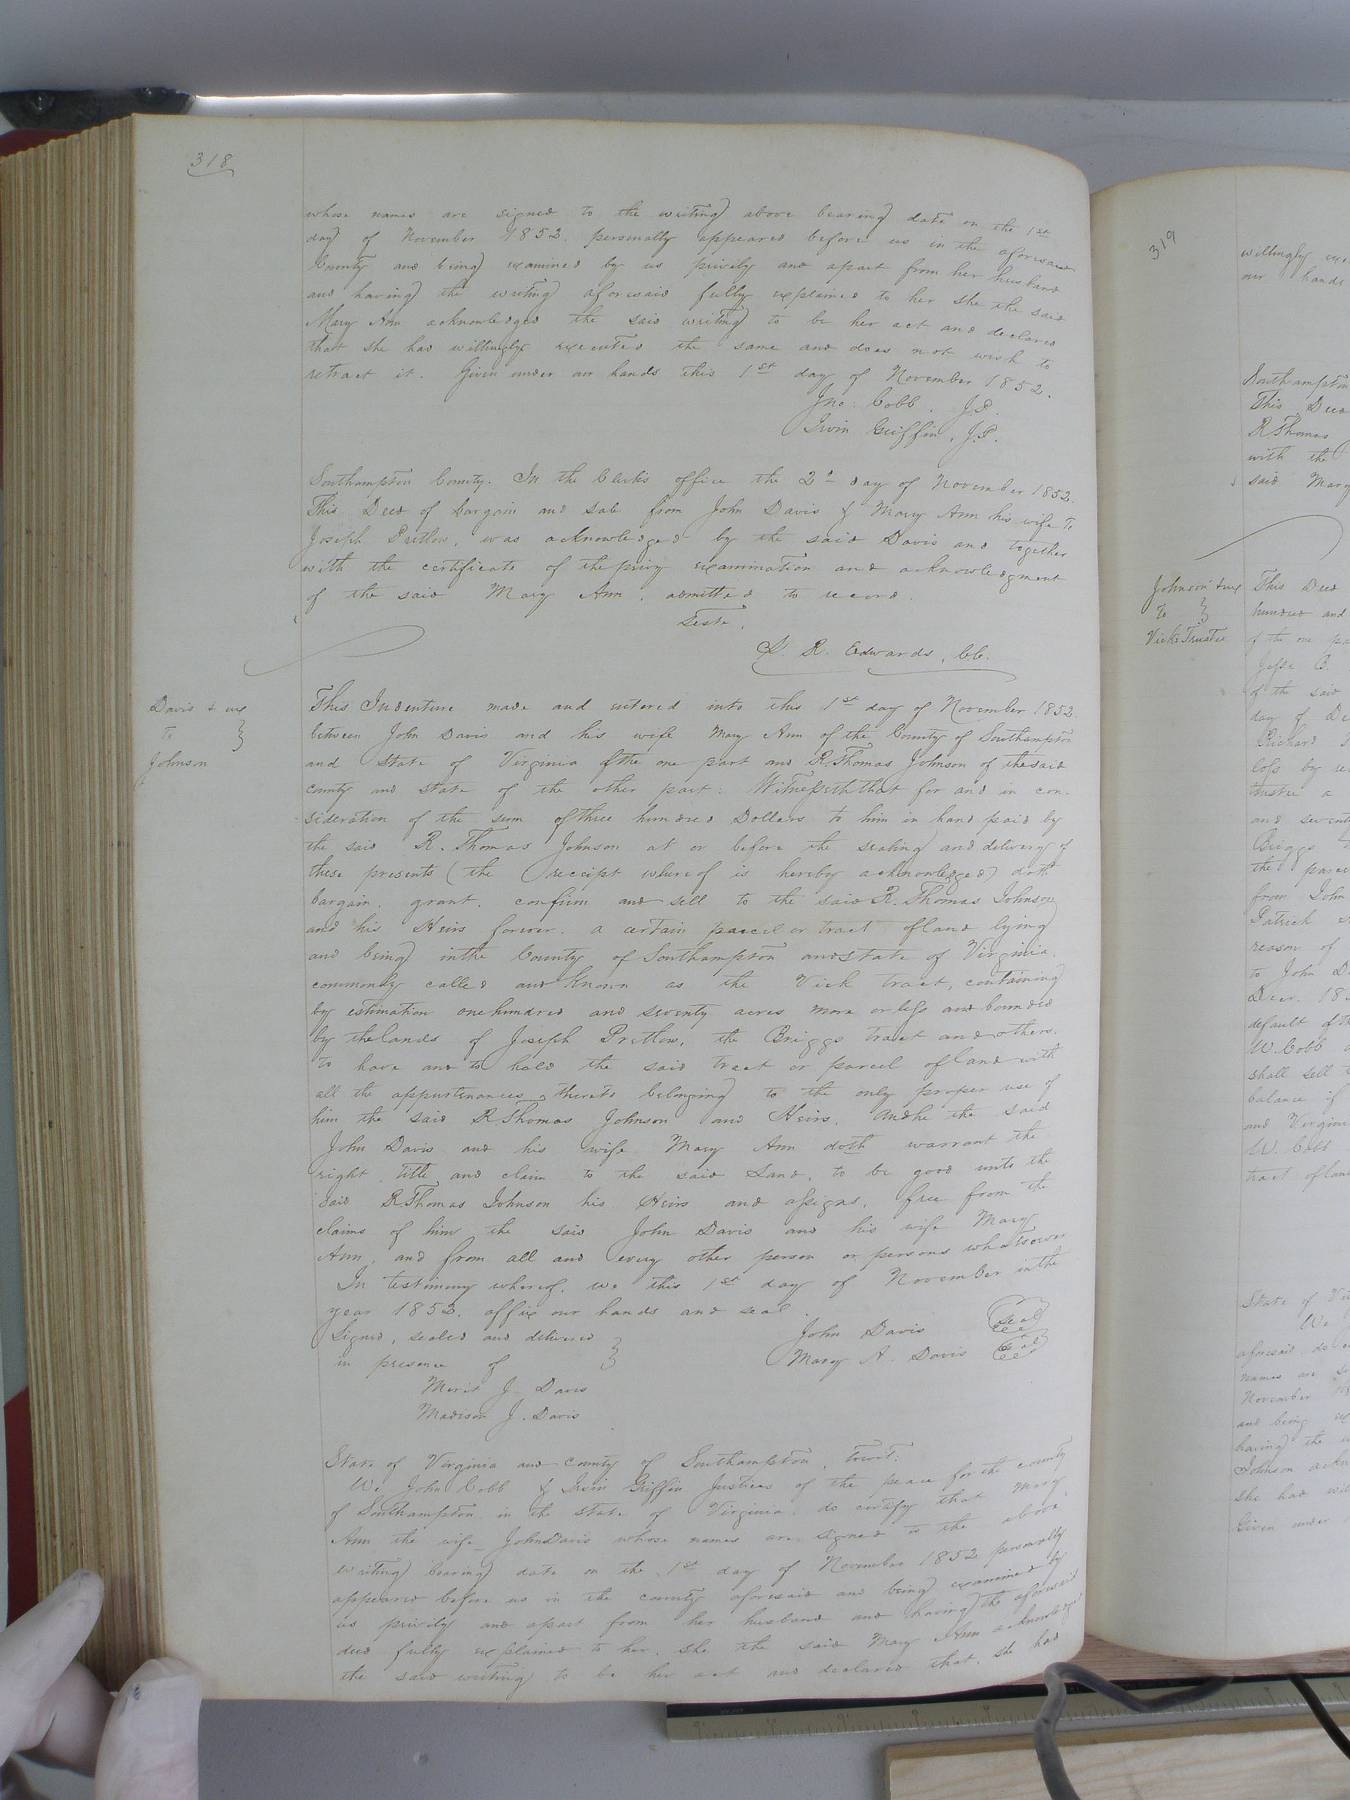 318
whose names are signed to the writing above bearing date on the 1st
day of November 1852. personally appeared before us in the aforesaid
County and being examined by us privily and apart from her husband
and having the writing aforesaid fully explained to her she the said
Mary Ann acknowledged the said writing to be her act and declared
that she had willingly executed the same and does not wish to
retract it. Given under our hands this 1st day of November 1852.
Jno. Cobb. J.P.
Irvin Griffin, J.P.
Southampton County. In the Clerk's office the 2d day of November 1852.
This Deed of bargain and sale from John Davis & Mary Ann his wife to
Joseph Pretlow, was acknowledged by the said Davis and together
with the certificate of the privy examination and acknowledgment
of the said Mary Ann, admitted to record.
Teste,
L. R. Edwards, CC.
Davis & ux
to
Johnson
This Indenture made and entered into this 1st day of November 1852
between John Davis and his wife Mary Ann of the County of Southampton
and State of Virginia of the one part and R. Thomas Johnson of the said
county and state of the other part: Witnesseth that for and in con-
sideration of the sum of three hundred Dollars to him in hand paid by
the said R. Thomas Johnson at or before the sealing and delivery of
these presents (the receipt whereof is hereby acknowledged) doth
bargain, grant, confirm and sell to the said R. Thomas Johnson
and his Heirs forever, a certain parcel or tract of land lying
and being in the County of Southampton and state of Virginia,
commonly called and known as the Vick tract, containing
by estimation one hundred and seventy acres more or less and bounded
by the lands of Joseph Pretlow, the Briggs tract and others.
to have and to hold the said tract or parcel of land with
all the appurtenances thereto belonging to the only proper use of
him the said R Thomas Johnson and Heirs, And he the said
John Davis and his wife Mary Ann doth warrant the
right, title and claim to the said Land, to be good unto the
said R Thomas Johnson his Heirs and assigns, free from the
claims of him the said John Davis and his wife Mary
Ann, and from all and every other person or persons whatsoever
In testimony whereof, we this 1st day of November in the
year 1852, affix our hands and seal.
Signed, sealed and delivered
in presence of
John Davis Seal
Mary A. Davis Seal
J. Davis
Madison J. Davis
State of Virginia and county of Southampton, towit:
We John Cobb & Irvin Griffin Justices of the peace for the county
of Southampton in the state of Virginia do certify that Mary
Ann the wife John Davis whose names are signed to the above
writing bearing date on the 1st day of November 1852 personally
appeared before us in the county aforesaid and being examined by
us privily and apart from her husband and having the aforesaid
deed fully explained to her, she the said Mary Ann acknowledged
the said writing to be her act and declared that, she had
319
willingly
our hands
Southampton
This Deed
R Thomas
with the
said Mary
Johnson & ux
to
Vicks Trustee
This Deed
hundred and
of the one
Jesse C.
of the said
day of
Richard
loss by
trustee a
and
Briggs
the
from John
Patrick
reason of
to John
Decr. 18
default of
W. Cobb
shall sell
balance if
and
W. Cobb
tract of land
State of
We
aforesaid do
names are
November
and being
having the
Johnson
she had
Given under